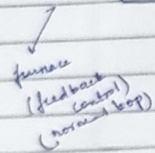 furnace
(feedback
control)
(normal